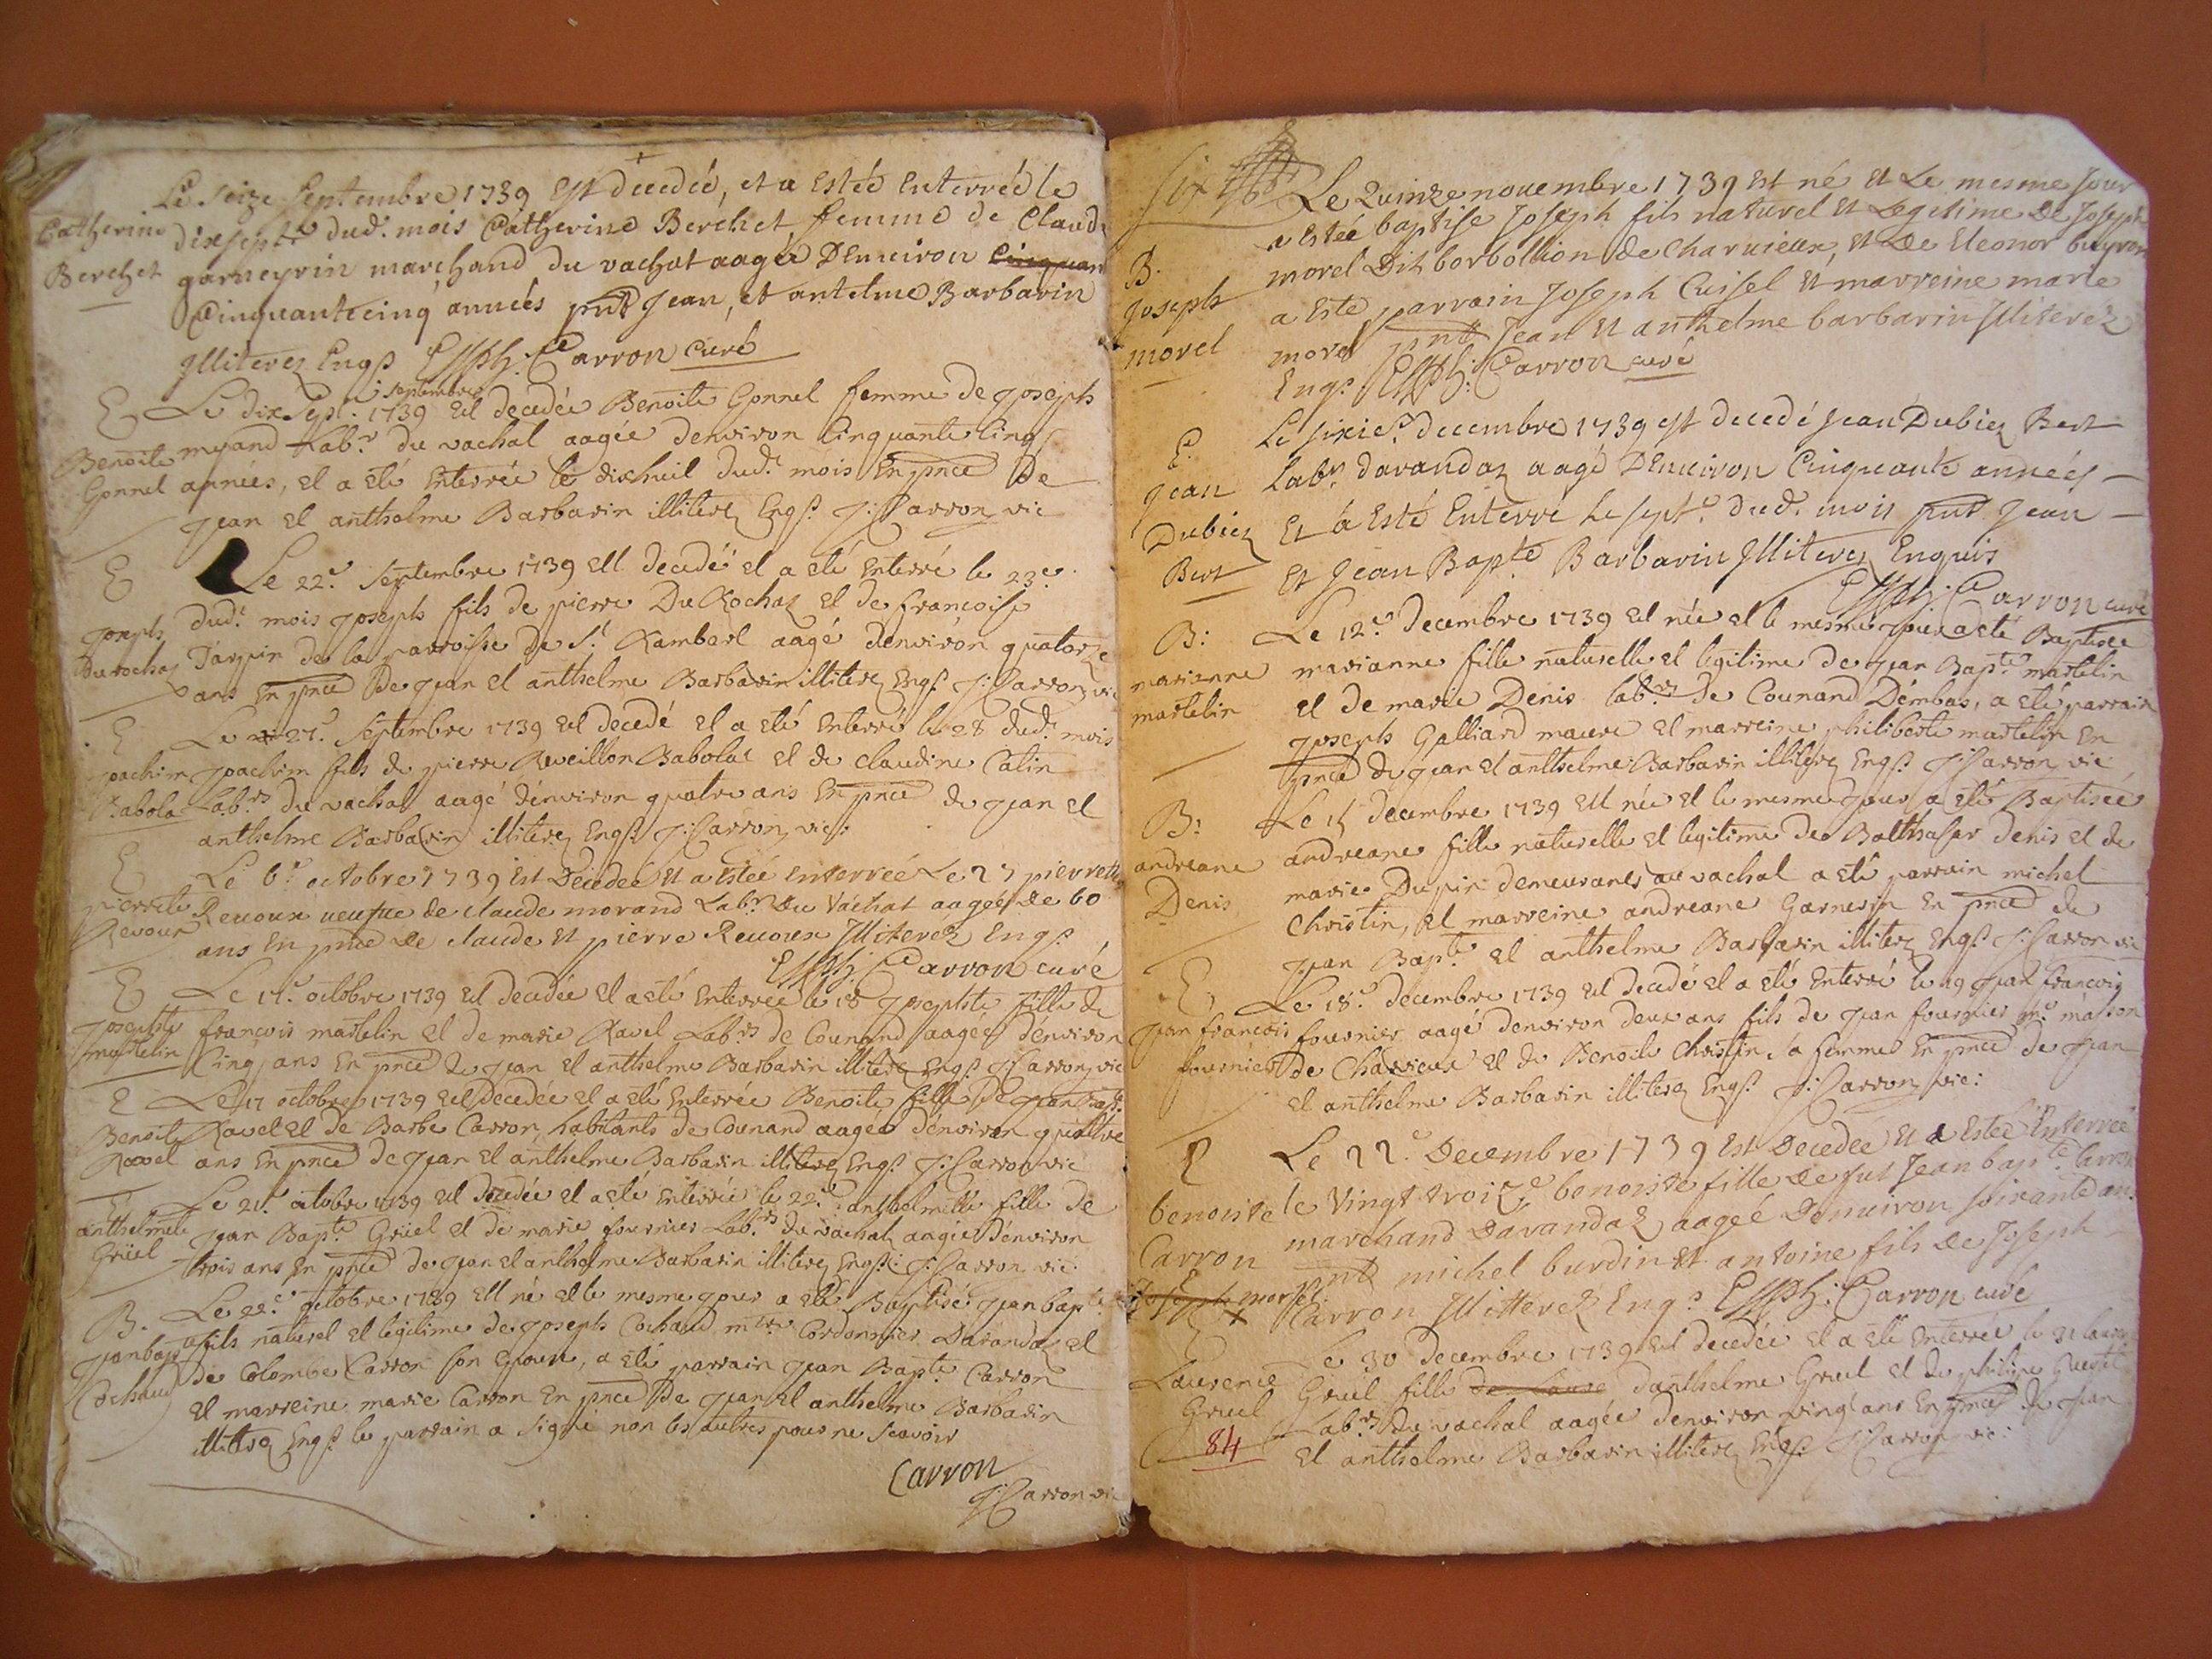 Le seize septembre 1739 est decedée, et a estée enterrée le
Catherine dixsept.e dud. mois Catherine Berchet, femme de Claude
Berchet garneyrin marchand du vachat aagée d'Enuiron
Cinquante cinq années pnt Jean, et antelme Barbarin
Jlliterez Enqs Carron curé
E Le dix sept. septembre 1739 est decedée Benoite Gonnel femme de Joseph
Benoite myand Labr du vachat aagée denviron Cinquante Cinq
Gonnel années, et a eté Enterrée le dixhuit dud. mois En pnce De
Jean et anthelme Barbarin illiterez Enqs J: Carron vic
E Le 22e Septembre 1739 est decedé et a eté Enterré le 23e
Joseph dud. mois Joseph fils de pierre Du Rochaz et de francoise
Durochaz Tarpin de la parroisse de St Rambert aagé denviron quatorze
ans En pnce De Jean et anthelme Barbarin illiterez Enqs J: Carron vic
E Le 27e Septembre 1739 est decedé et a eté Enterré le 28 dud. mois
Joachim Joachim fils de pierre Reveillon Babolat et de claudine Catin
Babola Labrs du vachat aagé d'environ quatre ans En pnce de Jean et
anthelme Barbarin illiterez Enqs J: Carron vic:
E Le 6e octobre 1739 Est Decedée et a estée enterrée Le 27 pierrette
pierrette Reuoux ueufue de claude morand Labr. Du Vachat aageé de 60
Revoux ans En pnce de claude et pierre Reuoux Jlliterez Enqs
Carron curé
E Le 17e octobre 1739 est decedée et a eté Enterrée le 18 Josephte fille de
Josephte francois martelin et de marie Ravel Labrs de Counand aagée denviron
martelin Cinq ans En pnce de Jean et anthelme Barbarin illiterez Enqs J: Carron vic
E Le 17 octobre 1739 est Decedée et a eté Enterrée Benoite fille De Jean Bapt.
Benoite Ravel et de Barbe Carron habitants de Counand aagée d'environ quatre
Ravel ans En pnce de Jean et anthelme Barbarin illiterez Enqs J: Carron vic
E Le 21e octobre 1739 est decedée et a eté enterrée le 22e anthelmette fille de
anthelmete Jean Bapte Grüel et de marie fournier Labrs du vachat aagée d'environ
Grüel trois ans En pnce de Jean et anthelme Barbarin illiterez Enqs: J: Carron vic:
B. Le 22e octobre 1739 est né et le mesme jour a eté Baptisé Jean bapte
Jean bapte fils naturel et legitime de Joseph Cochaud mtre Cordonnier Davandaz et
Cochaud de Colombe Carron son epouse, a eté parrain Jean Bapte Carron
et marreine marie Carron En pnce De Jean et anthelme Barbarin
illiterez Enqs le parrain a signé non les autres pour ne scavoir
Carron
J: Carron vic
Six
Le Quinze nouembre 1739 est né et Le mesme Jour
a estée baptise Joseph fils naturel et Legetime De Joseph
B. morel Dit borbollion de Charuieux, et De Eleonor buyron
Joseph a este parrain Joseph Cuisel et marreine marie
morel morel pnt Jean et anthelme barbarin Jlliterez
Enqs. Carron curé
E. Le sixie. decembre 1739 est decedé Jean Dubiez Bert
Jean labr. davandaz aagé D'Enuiron Cinquante années
Dubiez Et a Esté Enterré le septe. dud. mois pnt Jean
Bert Et Jean Bapte Barbarin Jlliterez Enquis
Carron curé
B: Le 12e Decembre 1739 est née et le mesme jour a eté Baptisée
marianne marianne fille naturelle et legitime de Jean Bapte martelin
martelin et de marie Denis labrs de Counand D'embas, a eté parrain
Joseph Galliard et marreine philiberte martelin En
pnce de Jean et anthelme Barbarin illiterez Enqs J: Carron vic
B: Le 15 decembre 1739 est née et le mesme jour a eté Baptisée
andreane andreane fille naturelle et legitime de Balthasar Denis et de
Denis marie Dupin demeurants au vachat a eté parrain michel
Christin, et marreine andreane Garnerin En pnce de
Jean Bapte et anthelme Barbarin illiterez Enqs J: Carron vic
E Le 18e decembre 1739 est decedé et a eté Enterré le 19 Jean francois
Jean francois fournier aagé denviron deux ans fils de Jean fournier me masson
fournier de Charvieux et de Benoite Christin sa femme En pnce de Jean
et anthelme Barbarin illiterez Enqs J: Carron vic:
E Le 22e Decembre 1739 Est Decedée et a Estée Enterrée
benoiste le Vingt troize benoiste fille de fut Jean bapte Carron
Carron marchand Davandaz aageé Denuiron soixante ans
pnt michel burdin et antoine fils de Joseph
Joseph morel Carron Jllitterez Enqs Carron curé
E Le 30 decembre 1739 est decedée et a eté enterrée le 31 Laurence
Laurence Grüel fille de Laure d'anthelme Gruel et de philipe
Gruel Labrs Du vachat aagée denviron vingt ans En pnce de Jean
84 et anthelme Barbarin illiterez Enqs J: Carron vic: